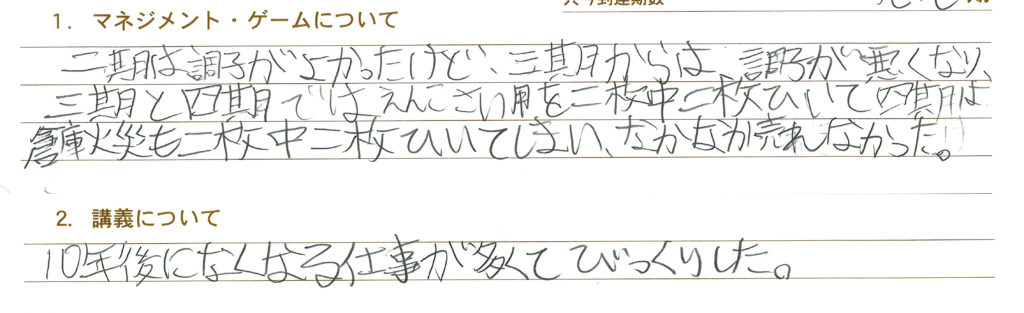 1. マネジメント・ゲームについて
二期は調子がよかったけど、三期からは、調子が悪くなり、
三期と四期ではえんこさい用を二枚中二枚ひいて四期は
倉庫火災も二枚中二枚ひいてしまい、なかなか売れなかった。
2. 講義について
10年後になくなる仕事が多くてびっくりした。